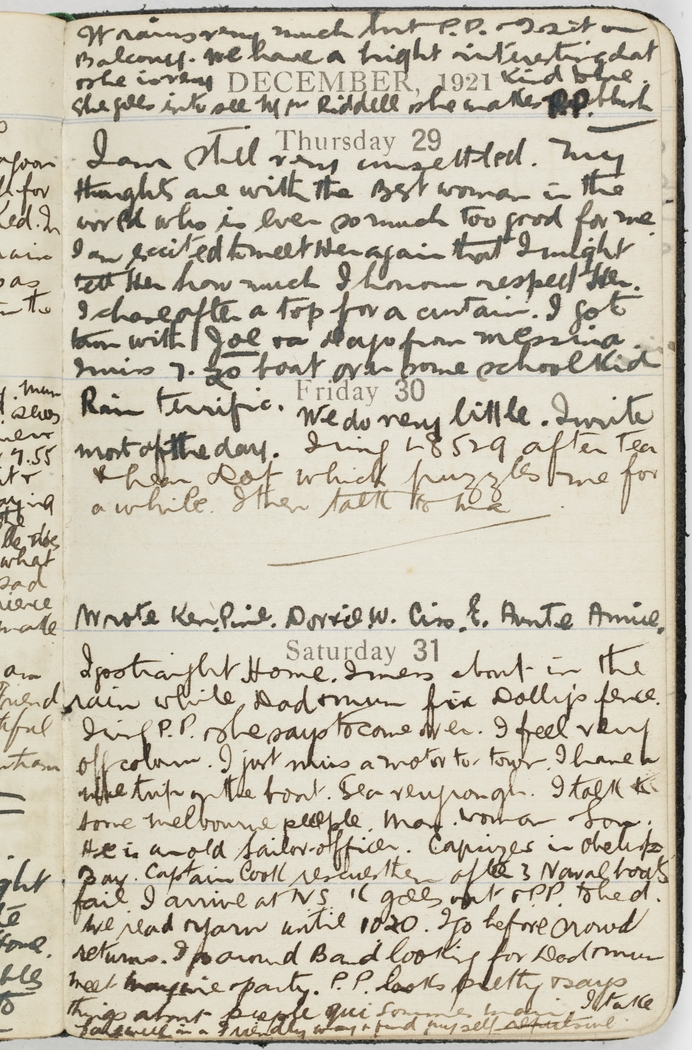 It rains very much but P.P. & I sit on
Balcony. We have a bright interesting chat
& she is very kind & true.
DECEMBER, 1921
She goes in to see Mr Riddell & she makes P.P. blush
Thursday 29
I am still very unsettled. My
thoughts are with the Best woman in the
world who is ever so much too good for me.
I am excited to meet Her again that I might
tell Her how much I honour & respect Her.
I chase after a top for a curtain. I got
with Joe Days from Messina.
I miss 7.20 boat over some school Kid
Friday 30
Rain terrific. We do very little. I write
most of the day. I ring L8529 after tea
& hear Dot which puzzles me for
a while. I then talk to
Wrote Ken. Dorrie W. Ciss. E. Aunte Annie.
Saturday 31
I go straight Home. I mess about in the
rain while Dad & mum fix Dolly's fence.
I ring P.P. & she says to come over. I feel very
off colour. I just miss a motor to town. I have a
nice trip on the boat. Sea very rough. I talk to
some Melbourne people. Man, woman & Son.
He is an old Sailor-officer. Capsizes in
Bay. Captain Cook rescues them after 3 Naval boats
fail I arrive at NS. K goes out & P.P. to bed.
We read & yarn until 1020. I go before crowd
returns. I go around Band looking for Dad & mum
meet & party. P.P. looks pretty & says
things about people qui I take
farewell in a friendly way & find myself